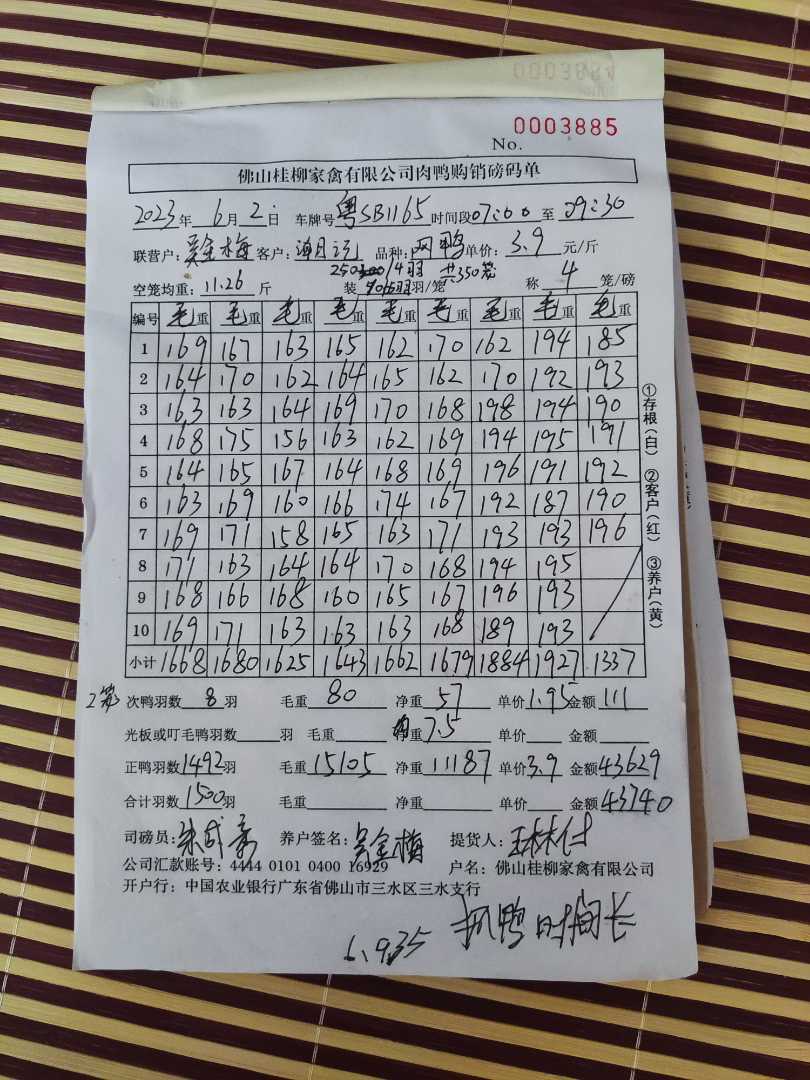 0003884
0003885
No.
佛山桂柳家禽有限公司肉鸭购销磅码单
2023年 6月 2日 车牌号 粤SB1165 时间段 07:00 至 09:30
联营户: 吴金梅 客户: 品种: 鸭 单价: 3.9 元/斤
250 14羽 共350笼
空笼均重: 11.26 斤 装 羽/笼 称 4 笼/磅
编号 毛重 毛重 毛重 毛重 毛重 毛重 毛重 毛重 毛重
1 169 167 163 165 162 170 162 194 185
2 164 170 162 164 165 162 170 192 193
3 163 163 164 169 170 168 198 194 190
4 168 175 156 163 162 169 194 195 191
5 164 165 167 164 168 169 196 191 192
6 163 169 160 166 174 167 192 187 190
7 169 171 158 165 163 171 193 193 196
8 171 163 164 164 170 168 194 195
9 168 166 168 160 165 167 196 193
10 169 171 163 163 163 168 189 193
小计 1668 1680 1625 1643 1662 1679 1884 1927 1337
2笼 次鸭羽数 8 羽 毛重 80 净重 57 单价 1.95 金额 111
光板或叮毛鸭羽数 羽 毛重 净重 7.5 单价 金额
正鸭羽数 1492 羽 毛重 15105 净重 11187 单价 3.9 金额 43629
合计羽数 1500 羽 毛重 净重 单价 金额 43740
司磅员: 养户签名: 吴金梅 提货人:
公司汇款账号: 4444 0101 0400 16929 户名: 佛山桂柳家禽有限公司
开户行: 中国农业银行广东省佛山市三水区三水支行
抓鸭时间长
6.935
①存根(白) ②客户(红) ③养户(黄)